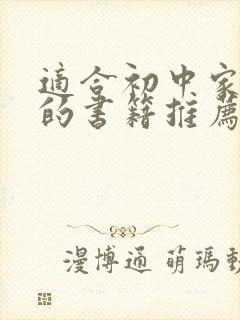 適合初中家
的書籍推薦
漫博通 萌瑪動